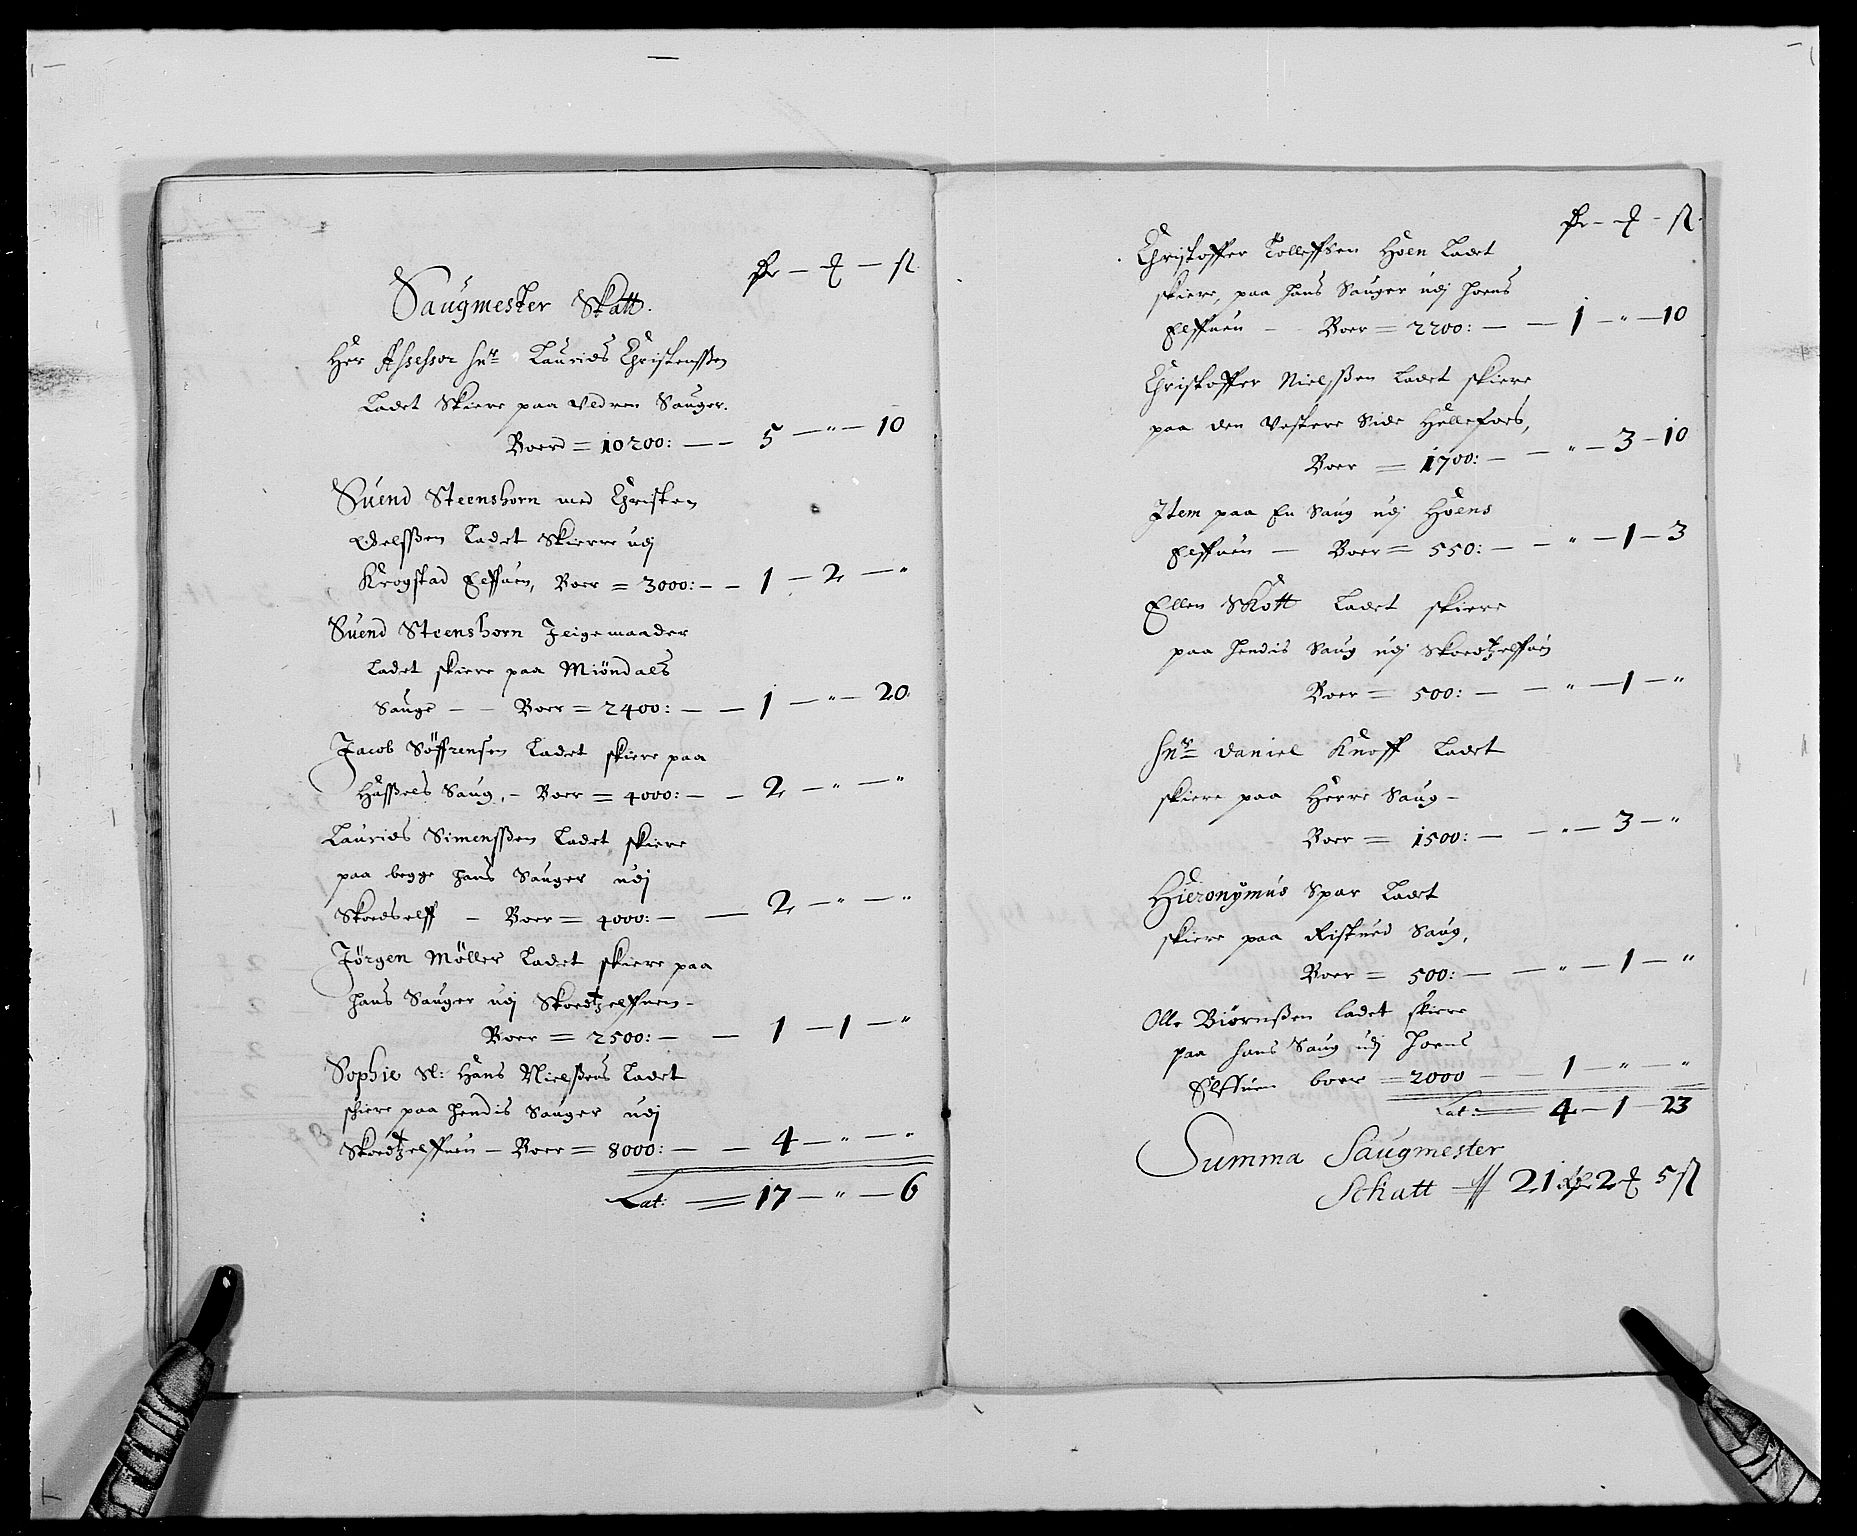 Rdr — ort — ß
Saugmester Skatt.
Her Assessor Hr Laurids Christenssen
Ladet Skiere paa Vedren Sauger.
Boerd = 10200: — — 5 — " — 10
Suend Steenshorn med Christen
Edelssen Ladet Skierre udj
Krogstad Elffuen, Boer = 3000: — — 1 — 2 — "
Suend Steenshorn Jligemaader
Ladet skiere paa Miöndals
Sauge — — Boer = 2400: — — 1 — " — 20
Jacob Söffrensen Ladet skiere paa
Hassels Saug, — Boer = 4000: — — 2 — " — "
Laurids Simenssen Ladet skiere
paa begge hans Sauger udj
Skoedselff — Boer = 4000: — — 2 — " — "
Jörgen Möller Ladet skiere paa
hans Sauger udj Skoedtzelffuen —
Boer = 2500: — — 1 — 1 — "
Sophie Sl: Hans Nielssens Ladet
schiere paa hendis Sauger udj
Skoedtzelffuen — Boer = 8000: — — 4 — " — "
Lat: = 17 — " — 6
Rdr — ort — ß
Christoffer Tolleffsen Hoen Ladet
skiere, paa hans Sauger udj hoens
Elffuen — Boer = 2200: — — 1 — " — 10
Christoffer Nielssen Ladet skiere
paa den Vestere Side Hellefoes,
Boer = 1700: — — " — 3 — 10
Item paa En Saug udj Hoens
Elffuen — Boer = 550: — — " — 1 — 3
Ellen Skott Ladet skiere
paa hendis Saug udj Skoedtzelffuen
Boer = 500: — — " — 1 — "
Hr Daniel Knoff Ladet
skiere paa Herre Saug —
Boer = 1500: — — " — 3 — "
Hieronÿmus Spar Ladet
skiere paa Ristued Saug,
Boer = 500: — — " — 1 — "
Olle Biörnssen ladet skiere
paa hans Saug udj Hoens
Elffuen boer = 2000 — — 1 — " — "
Lat: = 4 — 1 — 23
Summa Saugmester
Schatt 21 Rdr 2 ort 5 ß